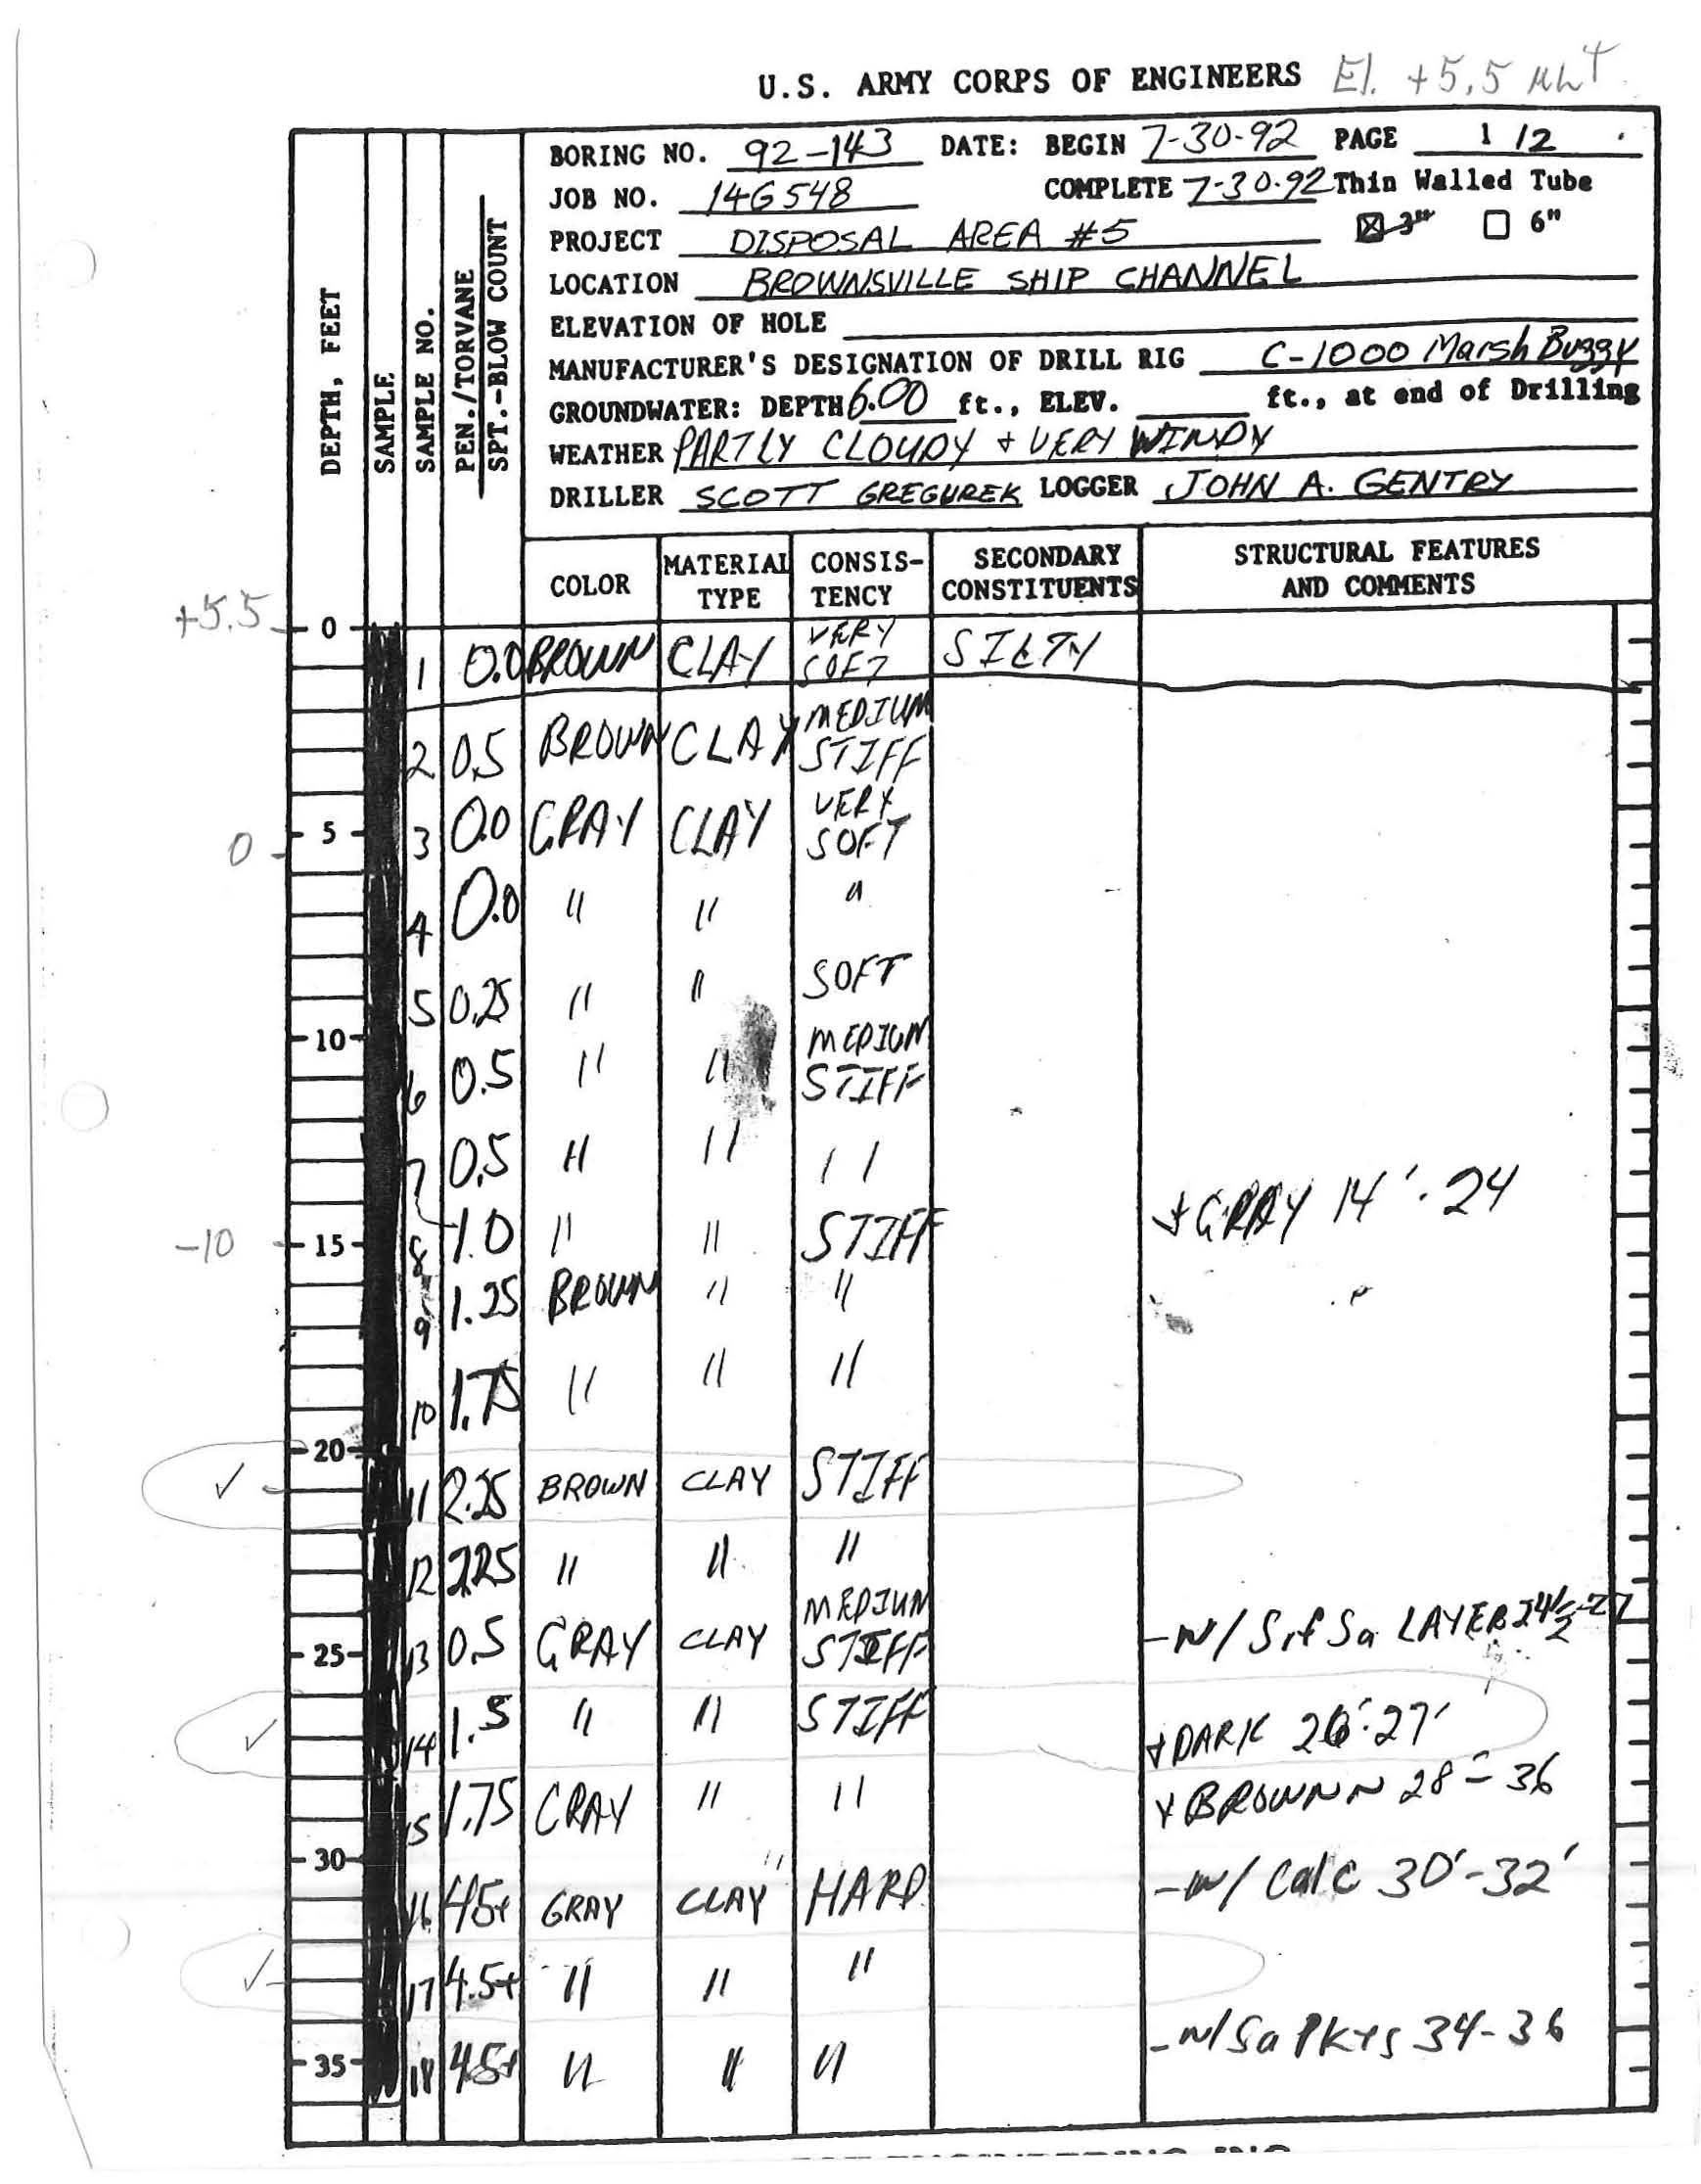 U.S. ARMY CORPS OF ENGINEERS El. +5.5 MLT
BORING NO. 92-143 DATE: BEGIN 7-30-92 PAGE 1 /2
JOB NO. 14G548 COMPLETE 7-30-92 Thin Walled Tube
PROJECT DISPOSAL AREA #5 ☒ 3" ☐ 6"
LOCATION BROWNSVILLE SHIP CHANNEL
ELEVATION OF HOLE
MANUFACTURER'S DESIGNATION OF DRILL RIG C-1000 Marsh Buggy
GROUNDWATER: DEPTH 6.00 ft., ELEV. ft., at end of Drilling
WEATHER PARTLY CLOUDY + VERY WINDY
DRILLER SCOTT GREGUREK LOGGER JOHN A. GENTRY
DEPTH, FEET
SAMPLE
SAMPLE NO.
PEN./TORVANE
SPT.-BLOW COUNT
COLOR
MATERIAL TYPE
CONSIS-TENCY
SECONDARY CONSTITUENTS
STRUCTURAL FEATURES AND COMMENTS
+5.5 0
1 0.0 BROWN CLAY VERY SOFT SILTY
2 0.5 BROWN CLAY MEDIUM STIFF
0 5 3 0.0 GRAY CLAY VERY SOFT
4 0.0 " " "
5 0.25 " " SOFT
10
6 0.5 " " MEDIUM STIFF
7 0.5 " " "
-10 15 8 1.0 " " STIFF + GRAY 14'-24
9 1.25 BROWN " "
10 1.75 " " "
20
✓ 11 2.25 BROWN CLAY STIFF
12 2.25 " " "
25 13 0.5 GRAY CLAY MEDIUM STIFF -W/ Sa LAYER 24½-27
✓ 14 1.5 " " STIFF + DARK 26'-27'
15 1.75 GRAY " " + BROWNN 28'-36
30
16 4.5+ GRAY CLAY " HARD -w/ Calc 30'-32'
✓ 17 4.5+ " " "
35 18 4.5+ " " " -W/Sa PKTS 34-36